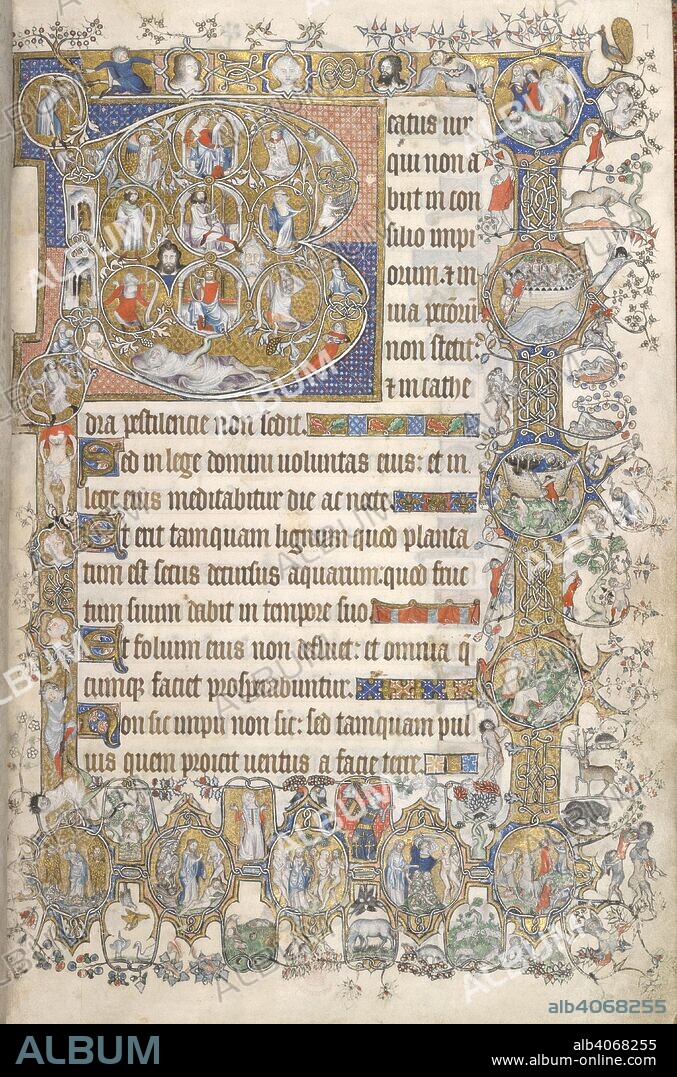 7
Beatus uir
qui non a
biit in con
silio impi
orum. & in
uia pctōrū
non stetit:
& in cathe
dra pestilencie non sedit.
Sed in lege domini uoluntas eius: et in
lege eius meditabitur die ac nocte.
Et erit tamquam lignum quod planta
tum est secus decursus aquarum: quod fruc
tum suum dabit in tempore suo
Et folium eius non defluet: et omnia q̄
cumq; faciet prosperabuntur.
Non sic impii non sic: sed tamquam pul
uis quem proicit uentus a facie terre.
alb4068255
ALBUM
alb4068255
www.album-online.com